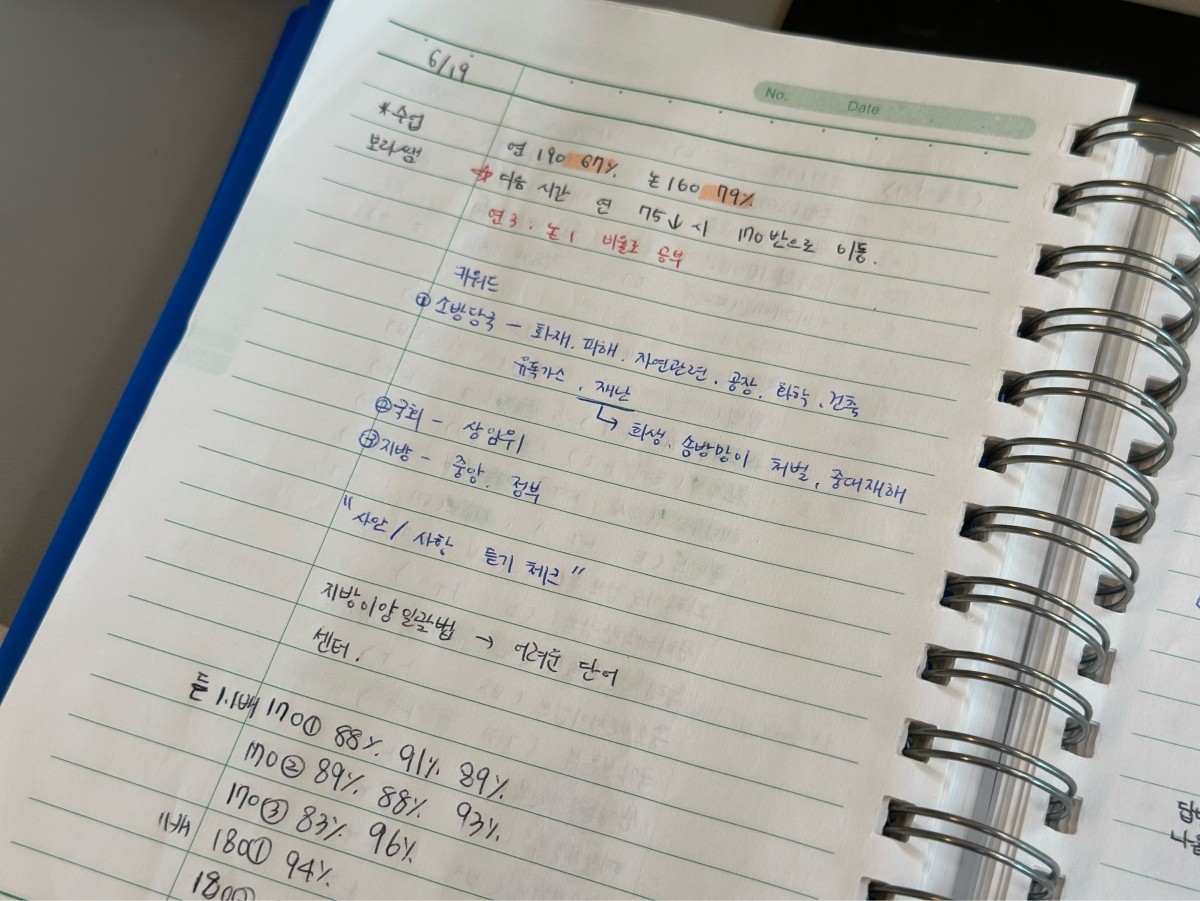 6/19
No. Date
*수업
보라쌤
연 190 67% 논 160 79%
☆ 다음 시간 연 75↓ 시 170 반으로 이동.
연 3 : 논 1 비율로 공부
키워드
① 소방당국 - 화재. 피해. 자연관련. 공장. 화학. 건축
유독가스. 재난
↳ 희생. 솜방망이 처벌, 중대재해
② 국회 - 상임위
③ 지방 - 중앙. 정부
"사안/사항 듣기 체크"
지방이양일괄법 → 어려운 단어
센터.
듣 1.1배 170① 88% 91% 89%
170② 89% 88% 93%
170③ 83% 96%
1배 180① 94%
180②